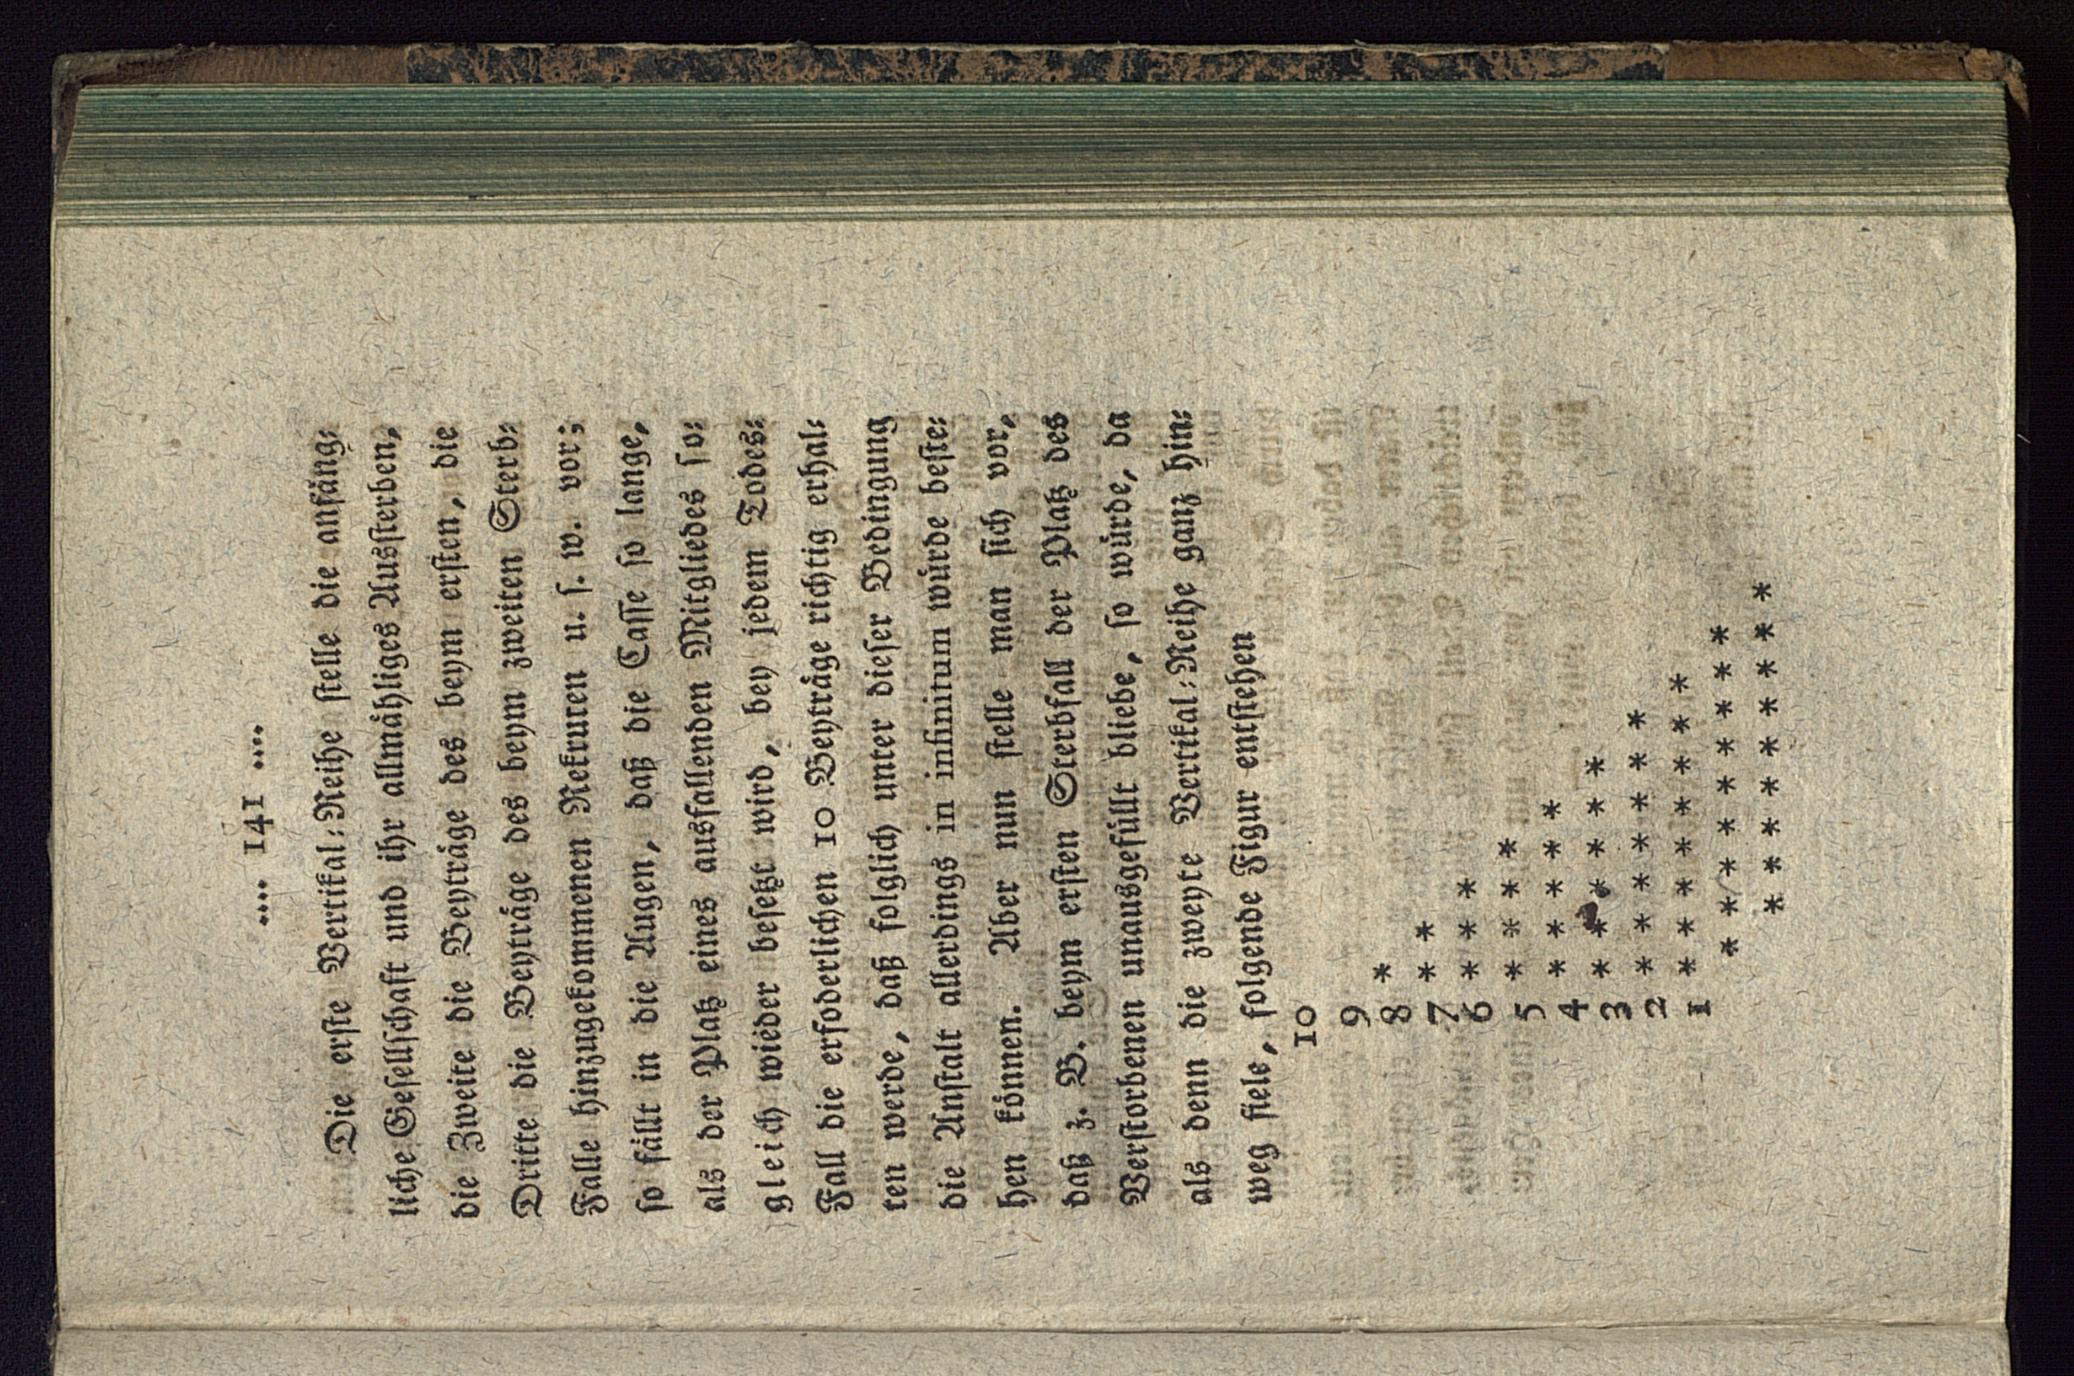 .... 141 ....
Die erſte Vertikal⸗Reihe ſtelle die anfäng⸗
liche Geſellſchaft und ihr allmähliges Ausſterben,
die Zweite die Beyträge des beym erſten, die
Dritte die Beyträge des beym zweiten Sterb⸗
Falle hinzugekommenen Rekruten u. ſ. w. vor;
ſo fällt in die Augen, daß die Caſſe ſo lange,
als der Platz eines ausfallenden Mitgliedes ſo⸗
gleich wieder beſetzt wird, bey jedem Todes⸗
Fall die erfoderlichen 10 Beyträge richtig erhal⸗
ten werde, daß folglich unter dieſer Bedingung
die Anſtalt allerdings in infinitum würde beſte⸗
hen können. Aber nun ſtelle man ſich vor,
daß z. B. beym erſten Sterbfall der Platz des
Verſtorbenen unausgefüllt bliebe, ſo würde, da
als denn die zweyte Vertikal⸗Reihe ganz hin⸗
weg fiele, folgende Figur entſtehen
10
9
8 *
7 * *
6 * * *
5 * * * *
4 * * * * *
3 * * * * * *
2 * * * * * * *
1 * * * * * * * *
* * * * * * * * *
* * * * * * * * *